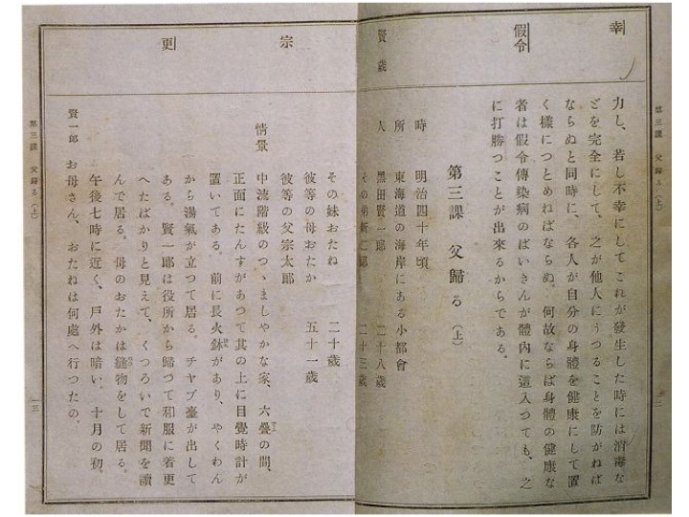 幸
假令
賢 歳
宗
更
第三課 父歸る(上)
力し、若し不幸にしてこれが發生した時には消毒な
どを完全にして、之が他人にうつることを防がねば
ならぬと同時に、各人が自分の身體を健康にして置
く樣につとめねばならぬ。何故ならば身體の健康な
者は假令傳染病のばいきんが體内に這入つても、之
に打勝つことが出來るからである。
第三課 父歸る(上)
時 明治四十年頃
所 東海道の海岸にある小都會
人 黑田賢一郎 二十八歳
その弟新二郎 二十三歳
その妹おたね 二十歳
彼等の母おたか 五十一歳
彼等の父宗太郎
情景 中流階級のつゝましやかな家、六疊の間、
正面にたんすがあつて其の上に目覺時計が
置いてある。前に長火鉢があり、やくわん
から湯氣が立つて居る。チヤブ臺が出して
ある。賢一郎は役所から歸つて和服に着更
へたばかりと見えて、くつろいで新聞を讀
んで居る。母のおたかは縫物をして居る。
午後七時に近く、戸外は暗い。十月の初。
賢一郎 お母さん、おたねは何處へ行つたの。
第三課 父歸る(上)
一三